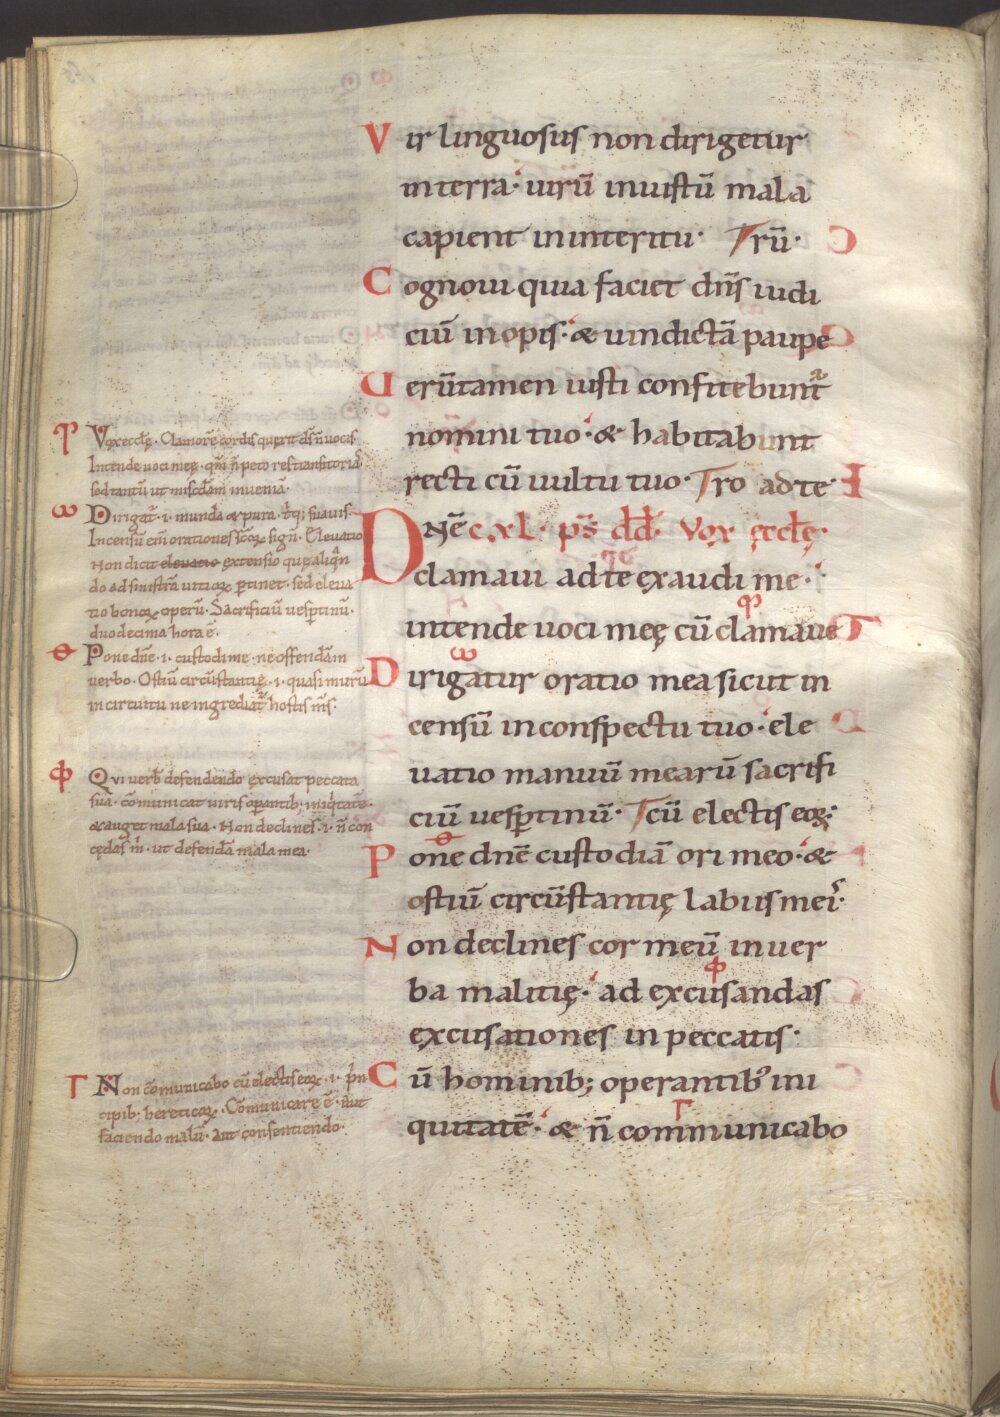 Vir linguosus non dirigetur
in terra· uirū iniustū mala
capient in interitu· Trū·
Cognoui quia faciet dn̄s iudi
ciū inopis· & uindictā paupe
Uerūtamen iusti confitebunt᷑
nomini tuo· & habitabunt
recti cū uultu tuo· Tro ad te
DNĒ c.xl· ps̄ dd̄· Vox ęcclę·
clamaui ad te exaudi me·
intende uoci meę cū clamaue
Dirigatur oratio mea sicut in
censū in conspectu tuo· ele
uatio manuū mearū sacrifi
ciū uesptinū· Tcū electis eoꝝ·
Pone dnē custodiā ori meo· &
ostiū circūstantię labiis mei·
Non declines cor meū in uer
ba malitię· ad excusandas
excusationes in peccatis·
Cū hominib; operantib' ini
quitatē· & n̄ communicabo
Vox ecclę· Clamorē cordis querit ds̄ n̄ uocis
Intende uoci meę· qm̄ n̄ peto res transitorias
sed tantū ut misc̄dam inueniā·
Dirigat᷑·i· munda & pura
Incensū eni orationes sc̄oꝝ sign̄· Eleuatio
Non dicit eleuatio extensio quę aliqn̄
do ad sinistrā uitioꝝ ptinet· sed eleua
tio bonoꝝ operū· Sacrificiū uesptinū·
duodecima hora ē·
Pone dnē·i· custodi me· ne offendam
uerbo· Ostiū circūstantię·i· quasi murū
in circuitu ne ingrediat᷑ hostis m̄s·
Qui uerb̄ defendendo excusat peccata
sua· cōmunicat uiris opantib; iniq̇tatē·
& auget mala sua· Non declines·i· n̄ con
cędas m̄· ut defendā mala mea·
Non cōmunicabo cū electis eoꝝ·i· prin
cipib; hereticoꝝ· Cōmunicare ē· aut
faciendo malū· aut consentiendo·